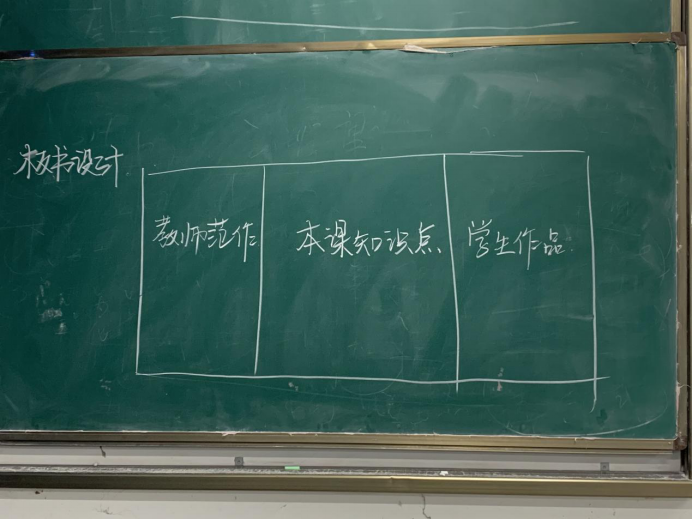 板书设计
教师范作
本课知识点
学生作品